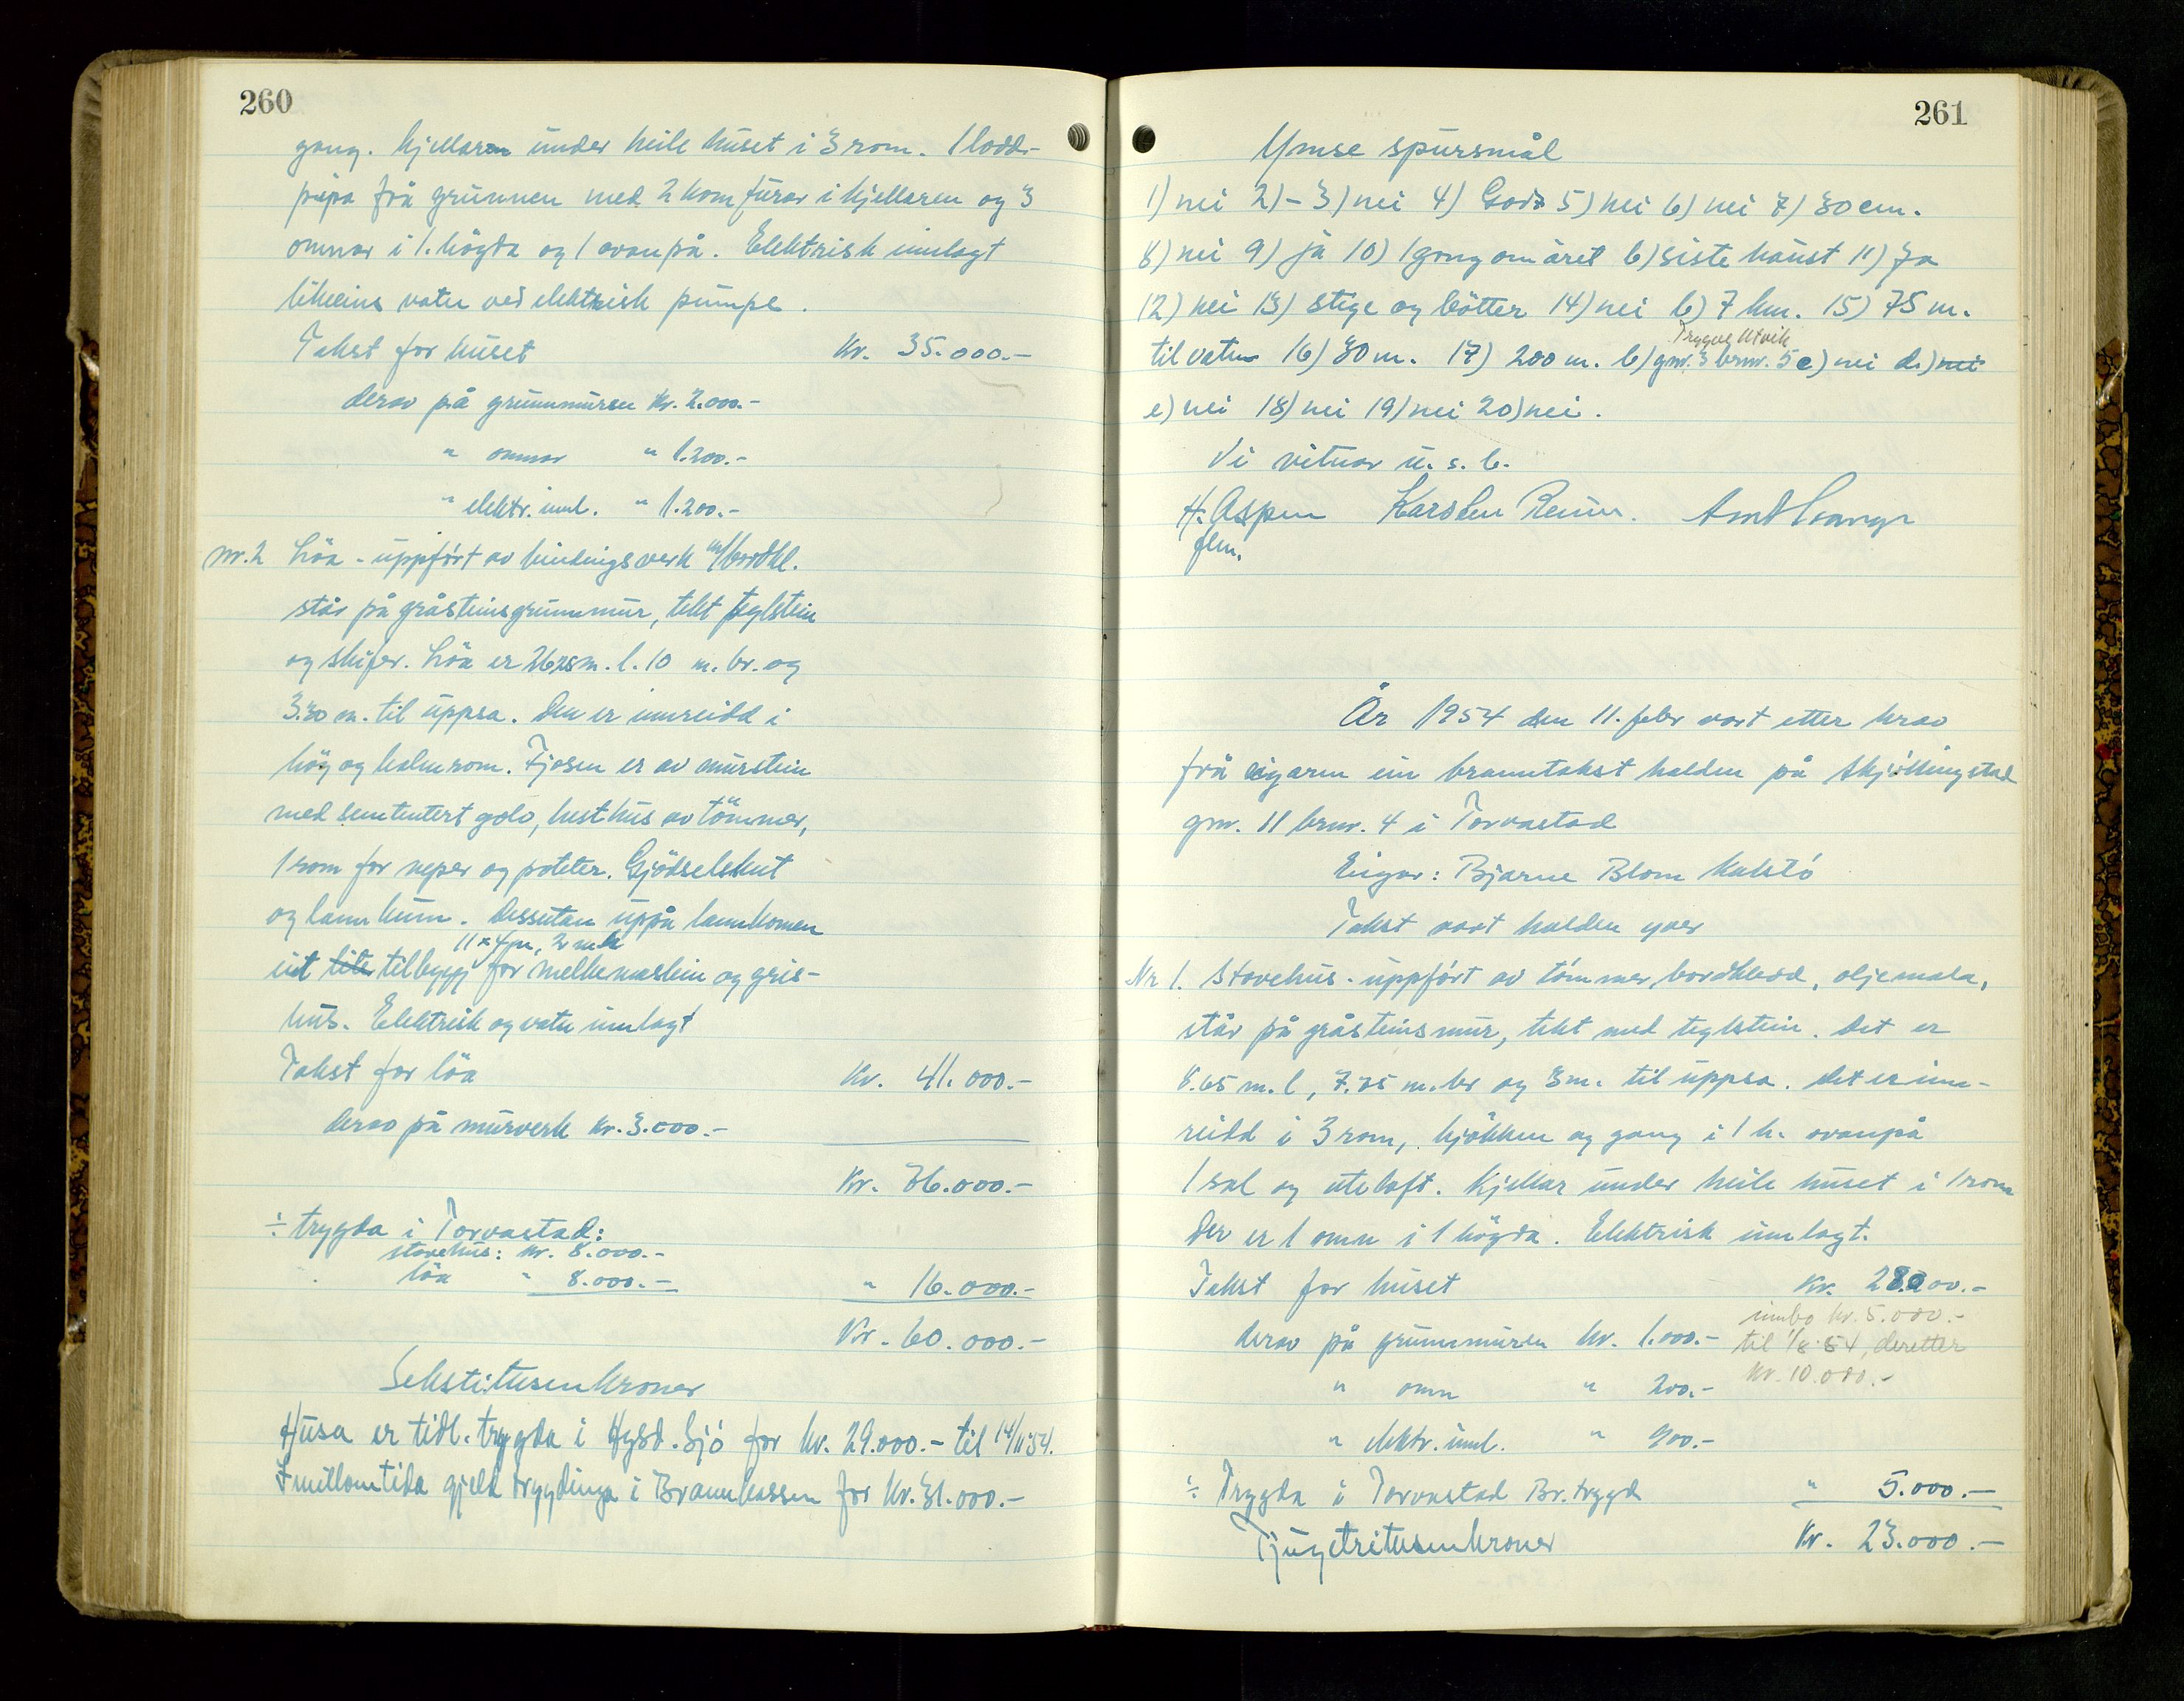 260
gang. Kjellaren under heile huset i 3 rom. 1 lodd-
pipa frå grunnen med 2 komfurar i kjellaren og 3
omnar i 1. högda og 1 ovanpå. Elektrisk innlagt
likeeins vatn ved elektrisk pumpe.
Takst for huset Kr. 35.000.-
derav på grunnmuren Kr. 2.000.-
" omnar " 1.200.-
" elektr. innl. " 1.200.-
nr. 2 Löa - uppfört av bindingsverk m/bordkl.
står på gråsteinsgrunnmur, tekt teglstein
og skifer. Löa er 26.25 m. l. 10 m. br. og
3.30 m. til uppsa. Den er innreidd i
höy og halmrom. Fjosen er av murstein
med sementert golv, hesthus av tömmer,
1 rom for neper og poteter. Gjödselskut
og lannkum. Dessutan uppå lannkomen
11 x 4 m, 2 m h
eit lite tilbygg for melkemaskin og gris-
hus. Elektrisk og vatn innlagt
Takst for löa Kr. 41.000.-
derav på murverk kr. 3.000.-
Kr. 76.000.-
÷ trygda i Torvastad:
stovehus: kr. 8.000.-
löa " 8.000.- " 16.000.-
Kr. 60.000.-
Sekstitusenkroner
Husa er tidl. trygda i Hgsd. Sjö for kr. 29.000.- til 14/11 54.
I millomtida gjeld trygdinga i Brannkassen for kr. 31.000.-
261
Ymse spursmål
1) nei 2) - 3) nei 4) God 5) nei 6) nei 7) 30 cm.
8) nei 9) ja 10) 1 gong om året b) siste haust 11) Ja
12) nei 13) stige og bötter 14) nei b) 7 km. 15) 75 m.
Trygve Utvik
til vatn 16) 30 m. 17) 200 m. b) gnr. 3 brnr. 5 c) nei d.) nei
e) nei 18) nei 19) nei 20) nei.
Vi vitnar u. s. b.
H. Aspen Karsten Reiun.
flm.
År 1954 den 11. febr vart etter krav
frå eigaren ein branntakst halden på Skjöllingstad
gnr. 11 brnr. 4 i Torvastad
Eigar: Bjarne Blom Kalstö
Takst vart halden yver
Nr 1. Stovehus - uppfört av tömmer, bordkledd, oljemala,
står på gråsteinsmur, tekt med teglstein. Det er
8.65 m. l, 7.75 m. br og 3 m. til uppsa. Det er inn-
reidd i 3 rom, kjökken og gang i 1 h. ovanpå
1 sal og uteloft. Kjellar under heile huset i 1 rom
Der er 1 omn i 1 högda. Elektrisk innlagt.
Takst for huset Kr. 28.000.-
innbo kr. 5.000.-
derav på grunnmuren kr. 1.000.- til 1/8-54, deretter
kr. 10.000.-
" omn " 200.-
" elektr. innl. " 900.-
÷ Trygda i Torvastad Br. trygd " 5.000.-
Tjugetritusenkroner Kr. 23.000.-